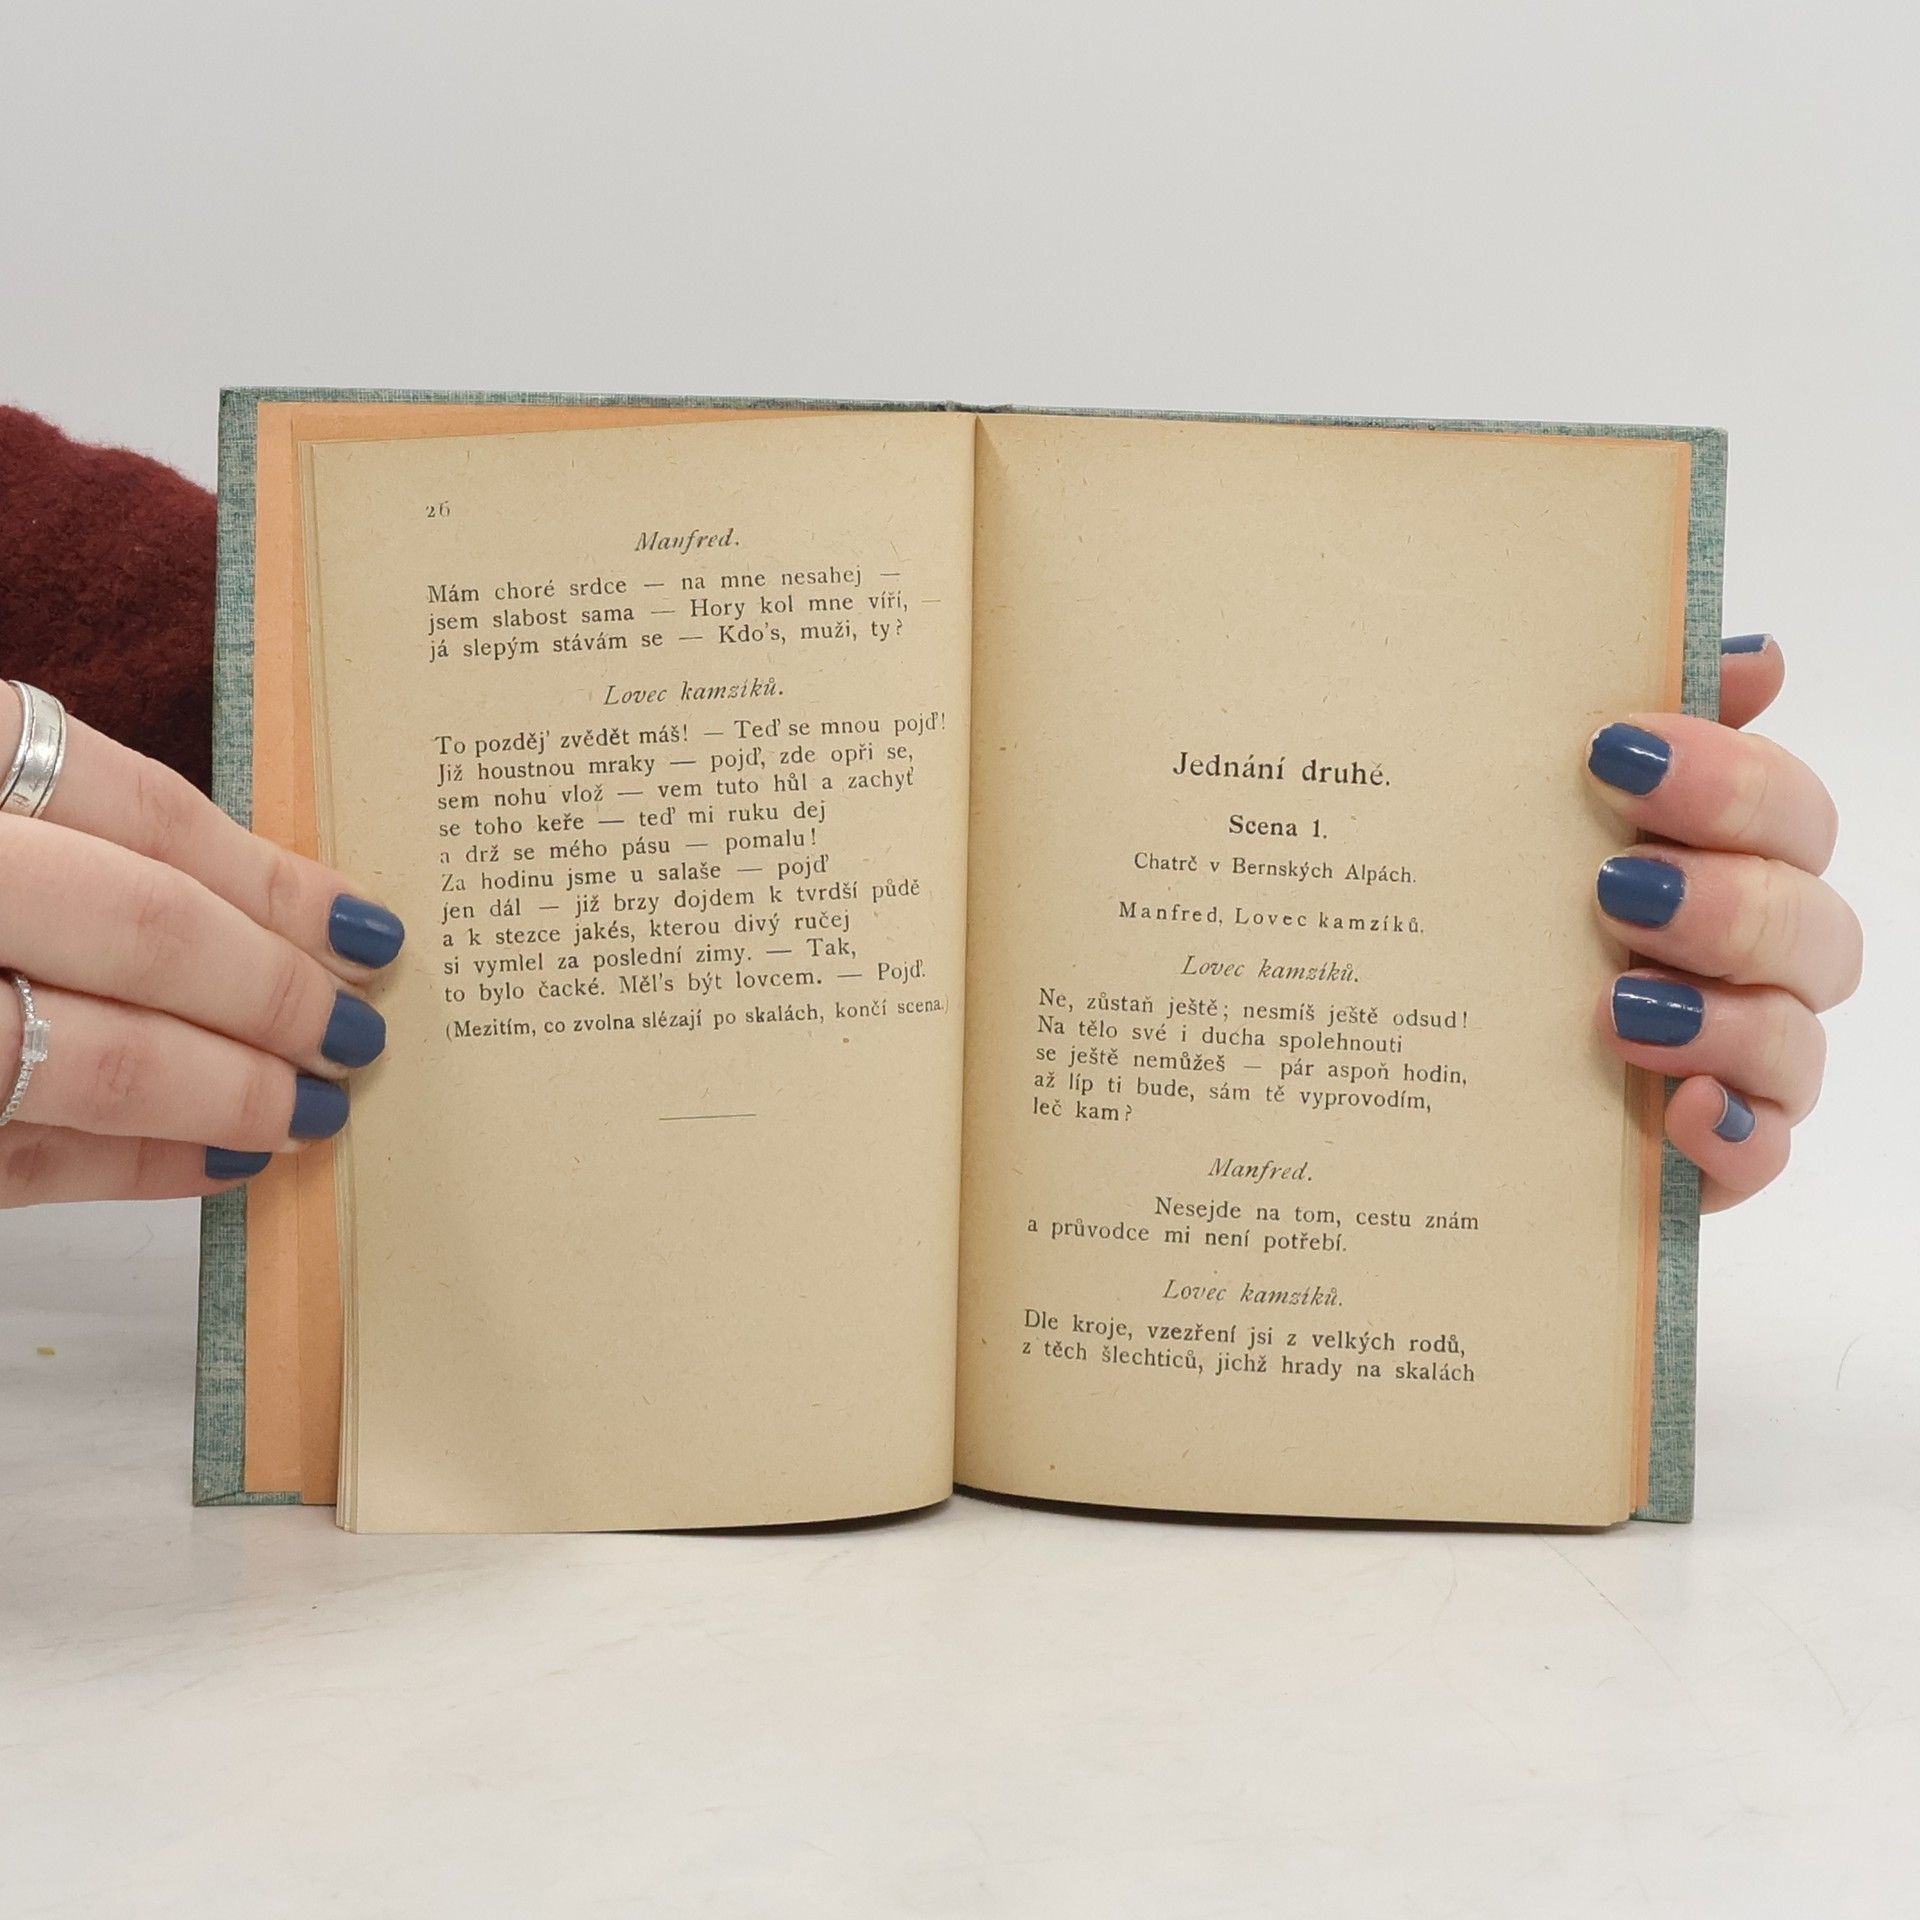 26
Manfred.
Mám choré srdce — na mne nesahej —
jsem slabost sama — Hory kol mne víří, —
já slepým stávám se — Kdo's, muži, ty?
Lovec kamzíků.
To pozděj' zvědět máš! — Teď se mnou pojď!
Již houstnou mraky — pojď, zde opři se,
sem nohu vlož — vem tuto hůl a zachyť
se toho keře — teď mi ruku dej
a drž se mého pásu — pomalu!
Za hodinu jsme u salaše — pojď
jen dál — již brzy dojdem k tvrdší půdě
a k stezce jakés, kterou divý ručej
si vymlel za poslední zimy. — Tak,
to bylo čacké. Měl's být lovcem. — Pojď.
(Mezitím, co zvolna slézají po skalách, končí scena.)
Jednání druhé.
Scena 1.
Chatrč v Bernských Alpách.
Manfred, Lovec kamzíků.
Lovec kamzíků.
Ne, zůstaň ještě; nesmíš ještě odsud!
Na tělo své i ducha spolehnouti
se ještě nemůžeš — pár aspoň hodin,
až líp ti bude, sám tě vyprovodím,
leč kam?
Manfred.
Nesejde na tom, cestu znám
a průvodce mi není potřebí.
Lovec kamzíků.
Dle kroje, vzezření jsi z velkých rodů,
z těch šlechticů, jichž hrady na skalách